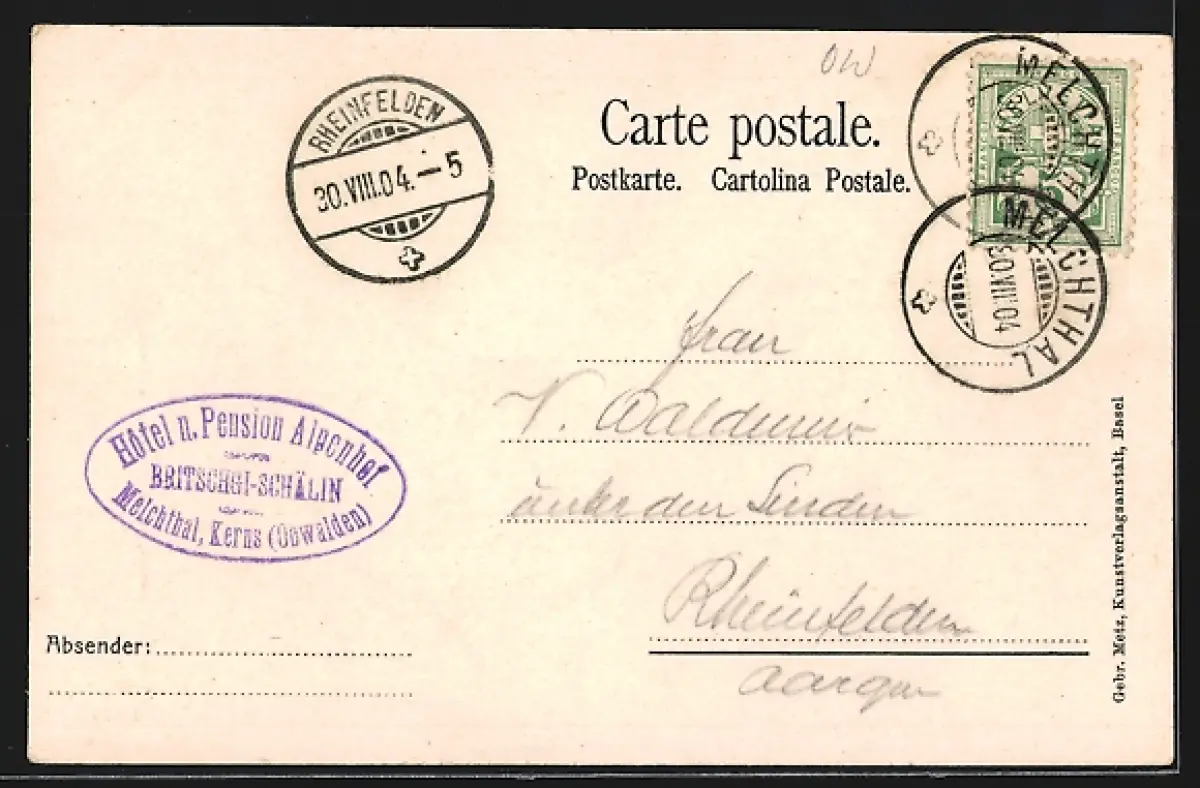 OW
Carte postale.
Postkarte. Cartolina Postale.
RHEINFELDEN
30.VIII.04.-5
MELCHTHAL
MELCHTHAL
30.VIII.04
Frau
V.
unter den Linden
Rheinfelden
Aargau
Hôtel u. Pension Alpenhof
BRITSCHGI-SCHÄLIN
Melchthal, Kerns (Obwalden)
Absender:
Gebr. Metz, Kunstverlagsanstalt, Basel